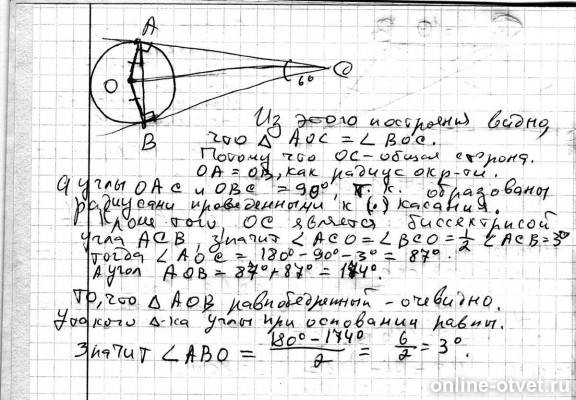 A
O
6°
C
B
Из этого построения видно,
что △ AOC = ∠ BOC.
Потому что OC – общая сторона.
OA = OB, как радиус окр-ти.
а углы OAC и OBC = 90°, т. к. образованы
радиусами проведенными к (·) касания.
Кроме того, OC является биссектрисой
угла ACB, значит ∠ACO = ∠BCO = 1/2 ∠ACB = 3°
Тогда ∠ AOC = 180° - 90° - 3° = 87°.
А угол AOB = 87° + 87° = 174°.
То, что △ AOB равнобедренный – очевидно.
У такого △-ка углы при основании равны.
Значит ∠ABO = 180° - 174° / 2 = 6/2 = 3°.
online-otvet.ru